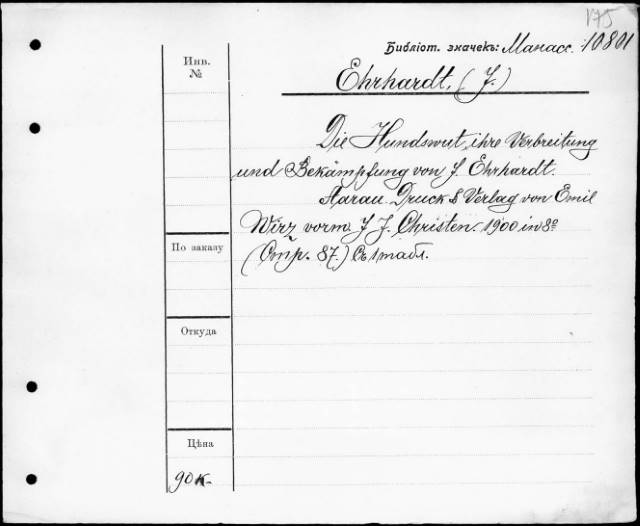 175
Библіот. значекъ: Манасс. 10801
Инв.
№
Ehrhardt, (J.)
Die Hundswut, ihre Verbreitung
und Bekämpfung von J. Ehrhardt.
Aarau Druck & Verlag von Emil
Wirz vorm J. J. Christen. 1900 in 8º
(Стр. 87.) Съ 1 табл.
По заказу
Откуда
Цѣна
90 к.